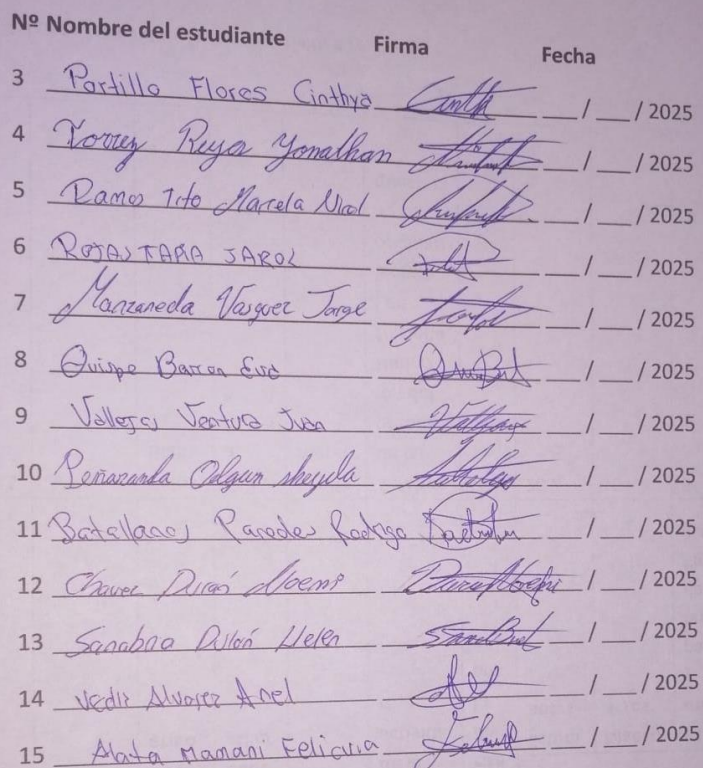 Nº Nombre del estudiante Firma Fecha
3 Portillo Flores Cinthya ___/ ___/ 2025
4 Torrez Reyes Yonathan ___/ ___/ 2025
5 Ramos Tito Marcela Nicol ___/ ___/ 2025
6 ROJAS TAPIA JAROL ___/ ___/ 2025
7 Manzaneda Vasquez Jorge ___/ ___/ 2025
8 Quispe Barron Eva ___/ ___/ 2025
9 Vallejos Ventura Juan ___/ ___/ 2025
10 Peñaranda Olguin sheyla ___/ ___/ 2025
11 Batallanos Paredes Rodrigo ___/ ___/ 2025
12 Chavez Durán Noemi ___/ ___/ 2025
13 Sanabria Helen ___/ ___/ 2025
14 Alvarez Anel ___/ ___/ 2025
15 Alata Mamani ___/ ___/ 2025